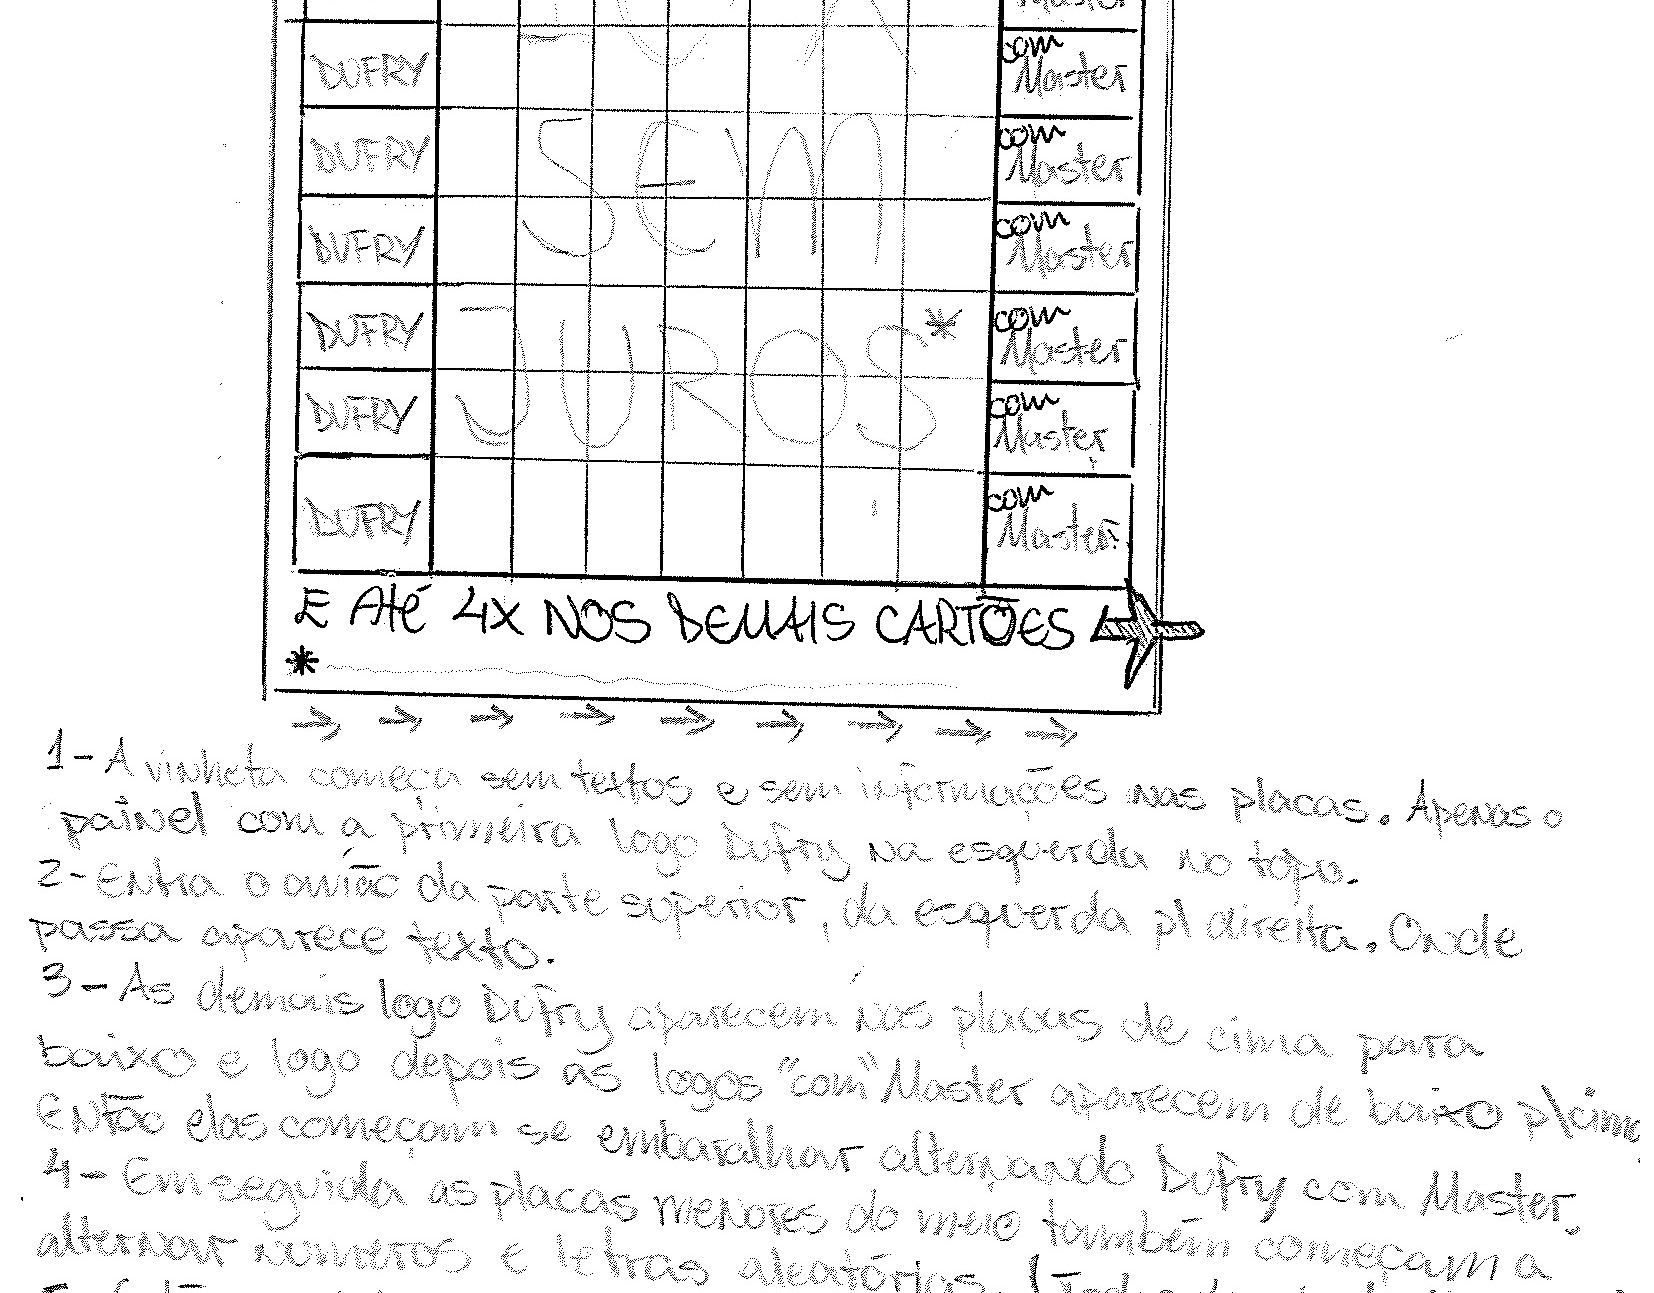 Master
DUFRY com Master
DUFRY SEM com Master
DUFRY com Master
DUFRY JUROS* com Master
DUFRY com Master
DUFRY com Master
E ATÉ 4X NOS DEMAIS CARTÕES
*
1- A vinheta começa sem textos e sem informações nas placas. Apenas o
painel com a primeira logo Dufry na esquerda no topo.
2- Entra o avião da parte superior, da esquerda p/ direita. Onde
passa aparece texto.
3- As demais logo Dufry aparecem nas placas de cima para
baixo e logo depois as logos "com" Master aparecem de baixo p/ cima
Então elas começam se embaralhar alternando Dufry com Master.
4- Em seguida as placas menores do meio também começam a
alternar numeros e letras aleatórias.